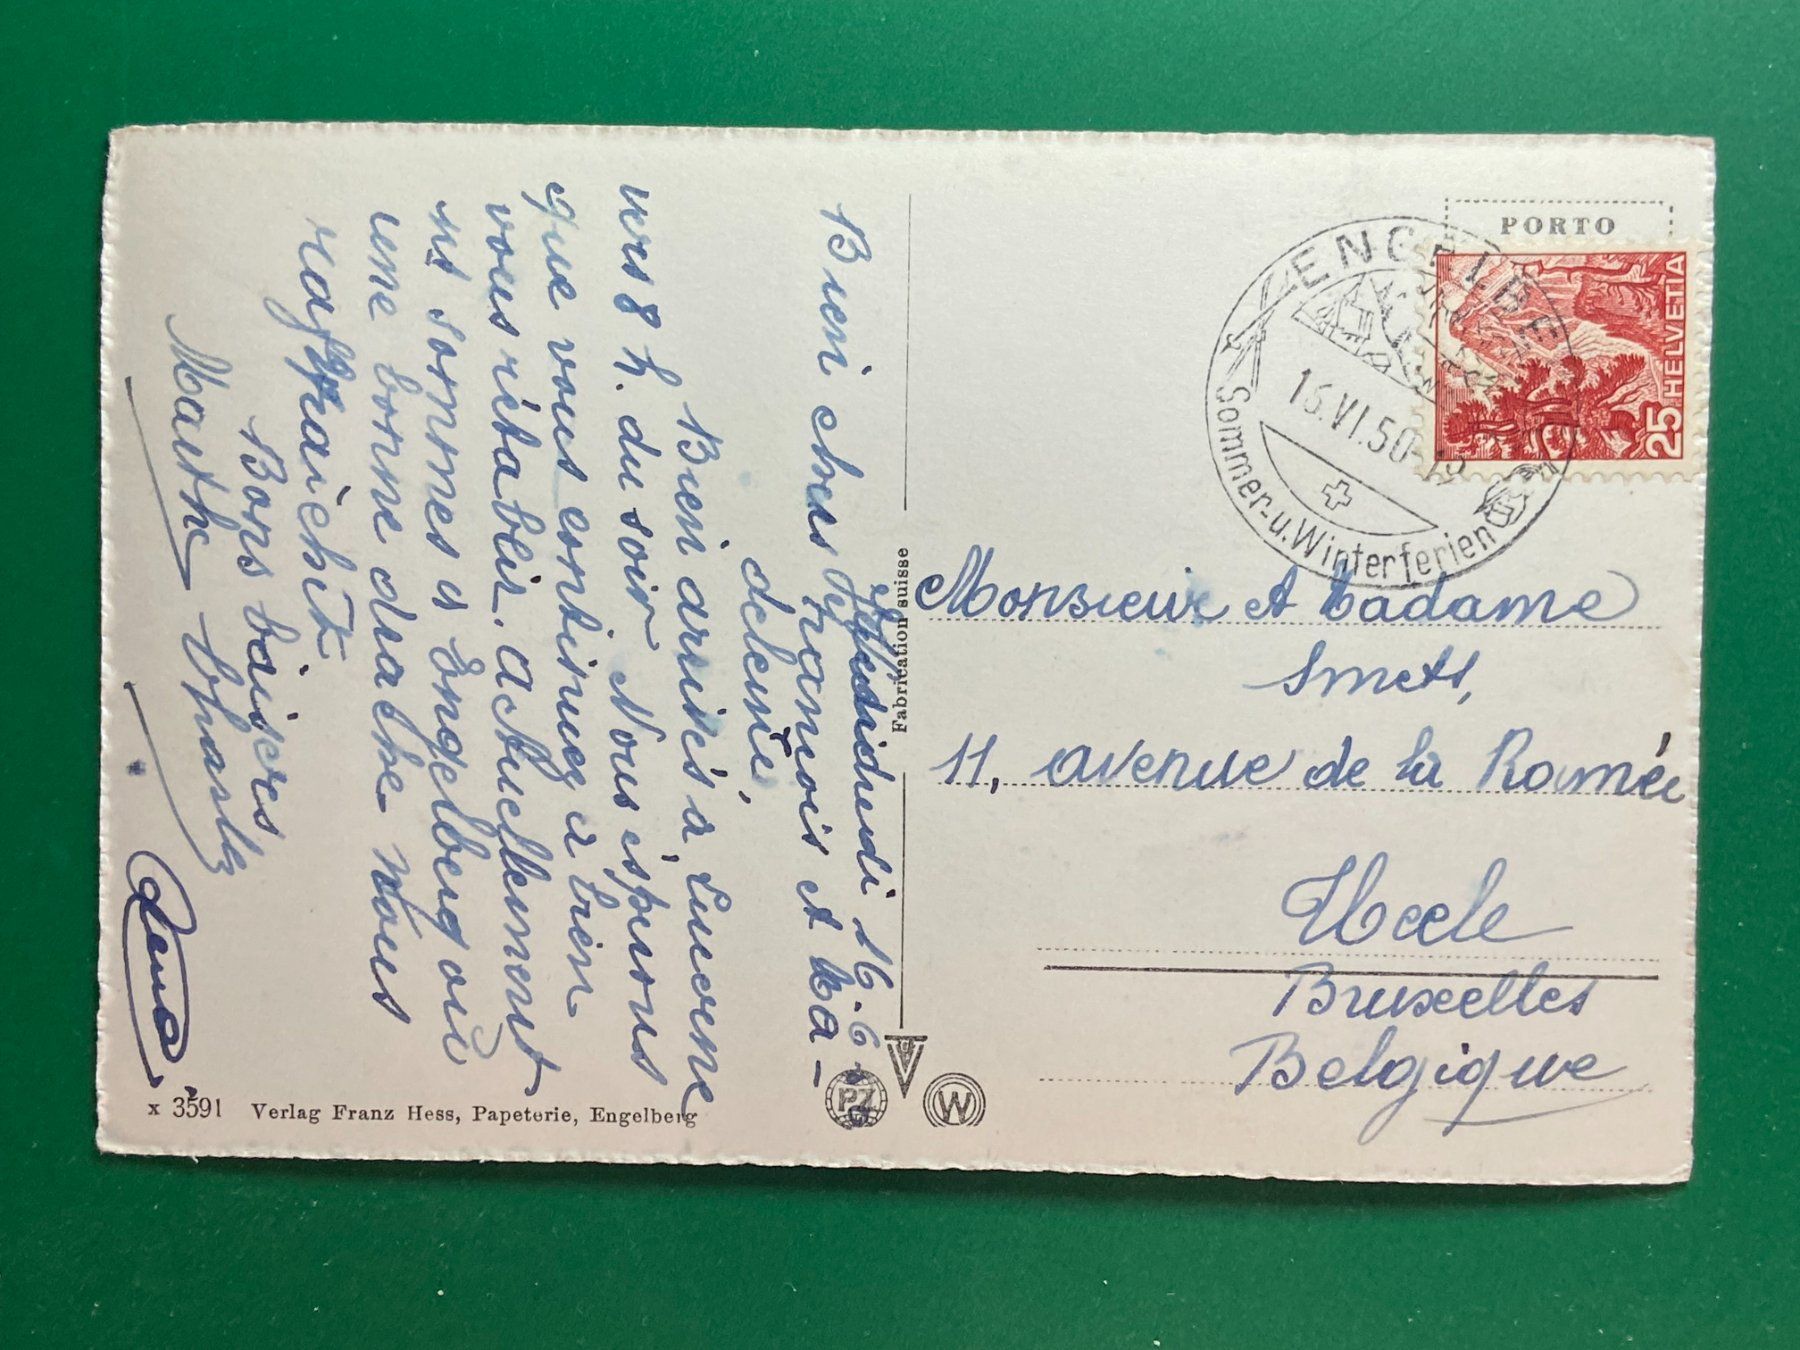 Vendredi 16.6.50
Bien chers François et Ma-
deleine,
Bien arrivés à Lucerne
vers 8 h. du soir. Nous espérons
que vous continuez à bien
vous rétablir. Actuellement
ns sommes à Engelberg où
une bonne drache nous
rafraichit.
Bons baisers
Marthe Charles
PORTO
HELVETIA
25
ENGELBERG
16.VI.50-19
Sommer- u. Winterferien
Monsieur et Madame
Smets,
11, avenue de la Ramée
Uccle
Bruxelles
Belgique
Fabrication suisse
x 3591 Verlag Franz Hess, Papeterie, Engelberg
PZ
W